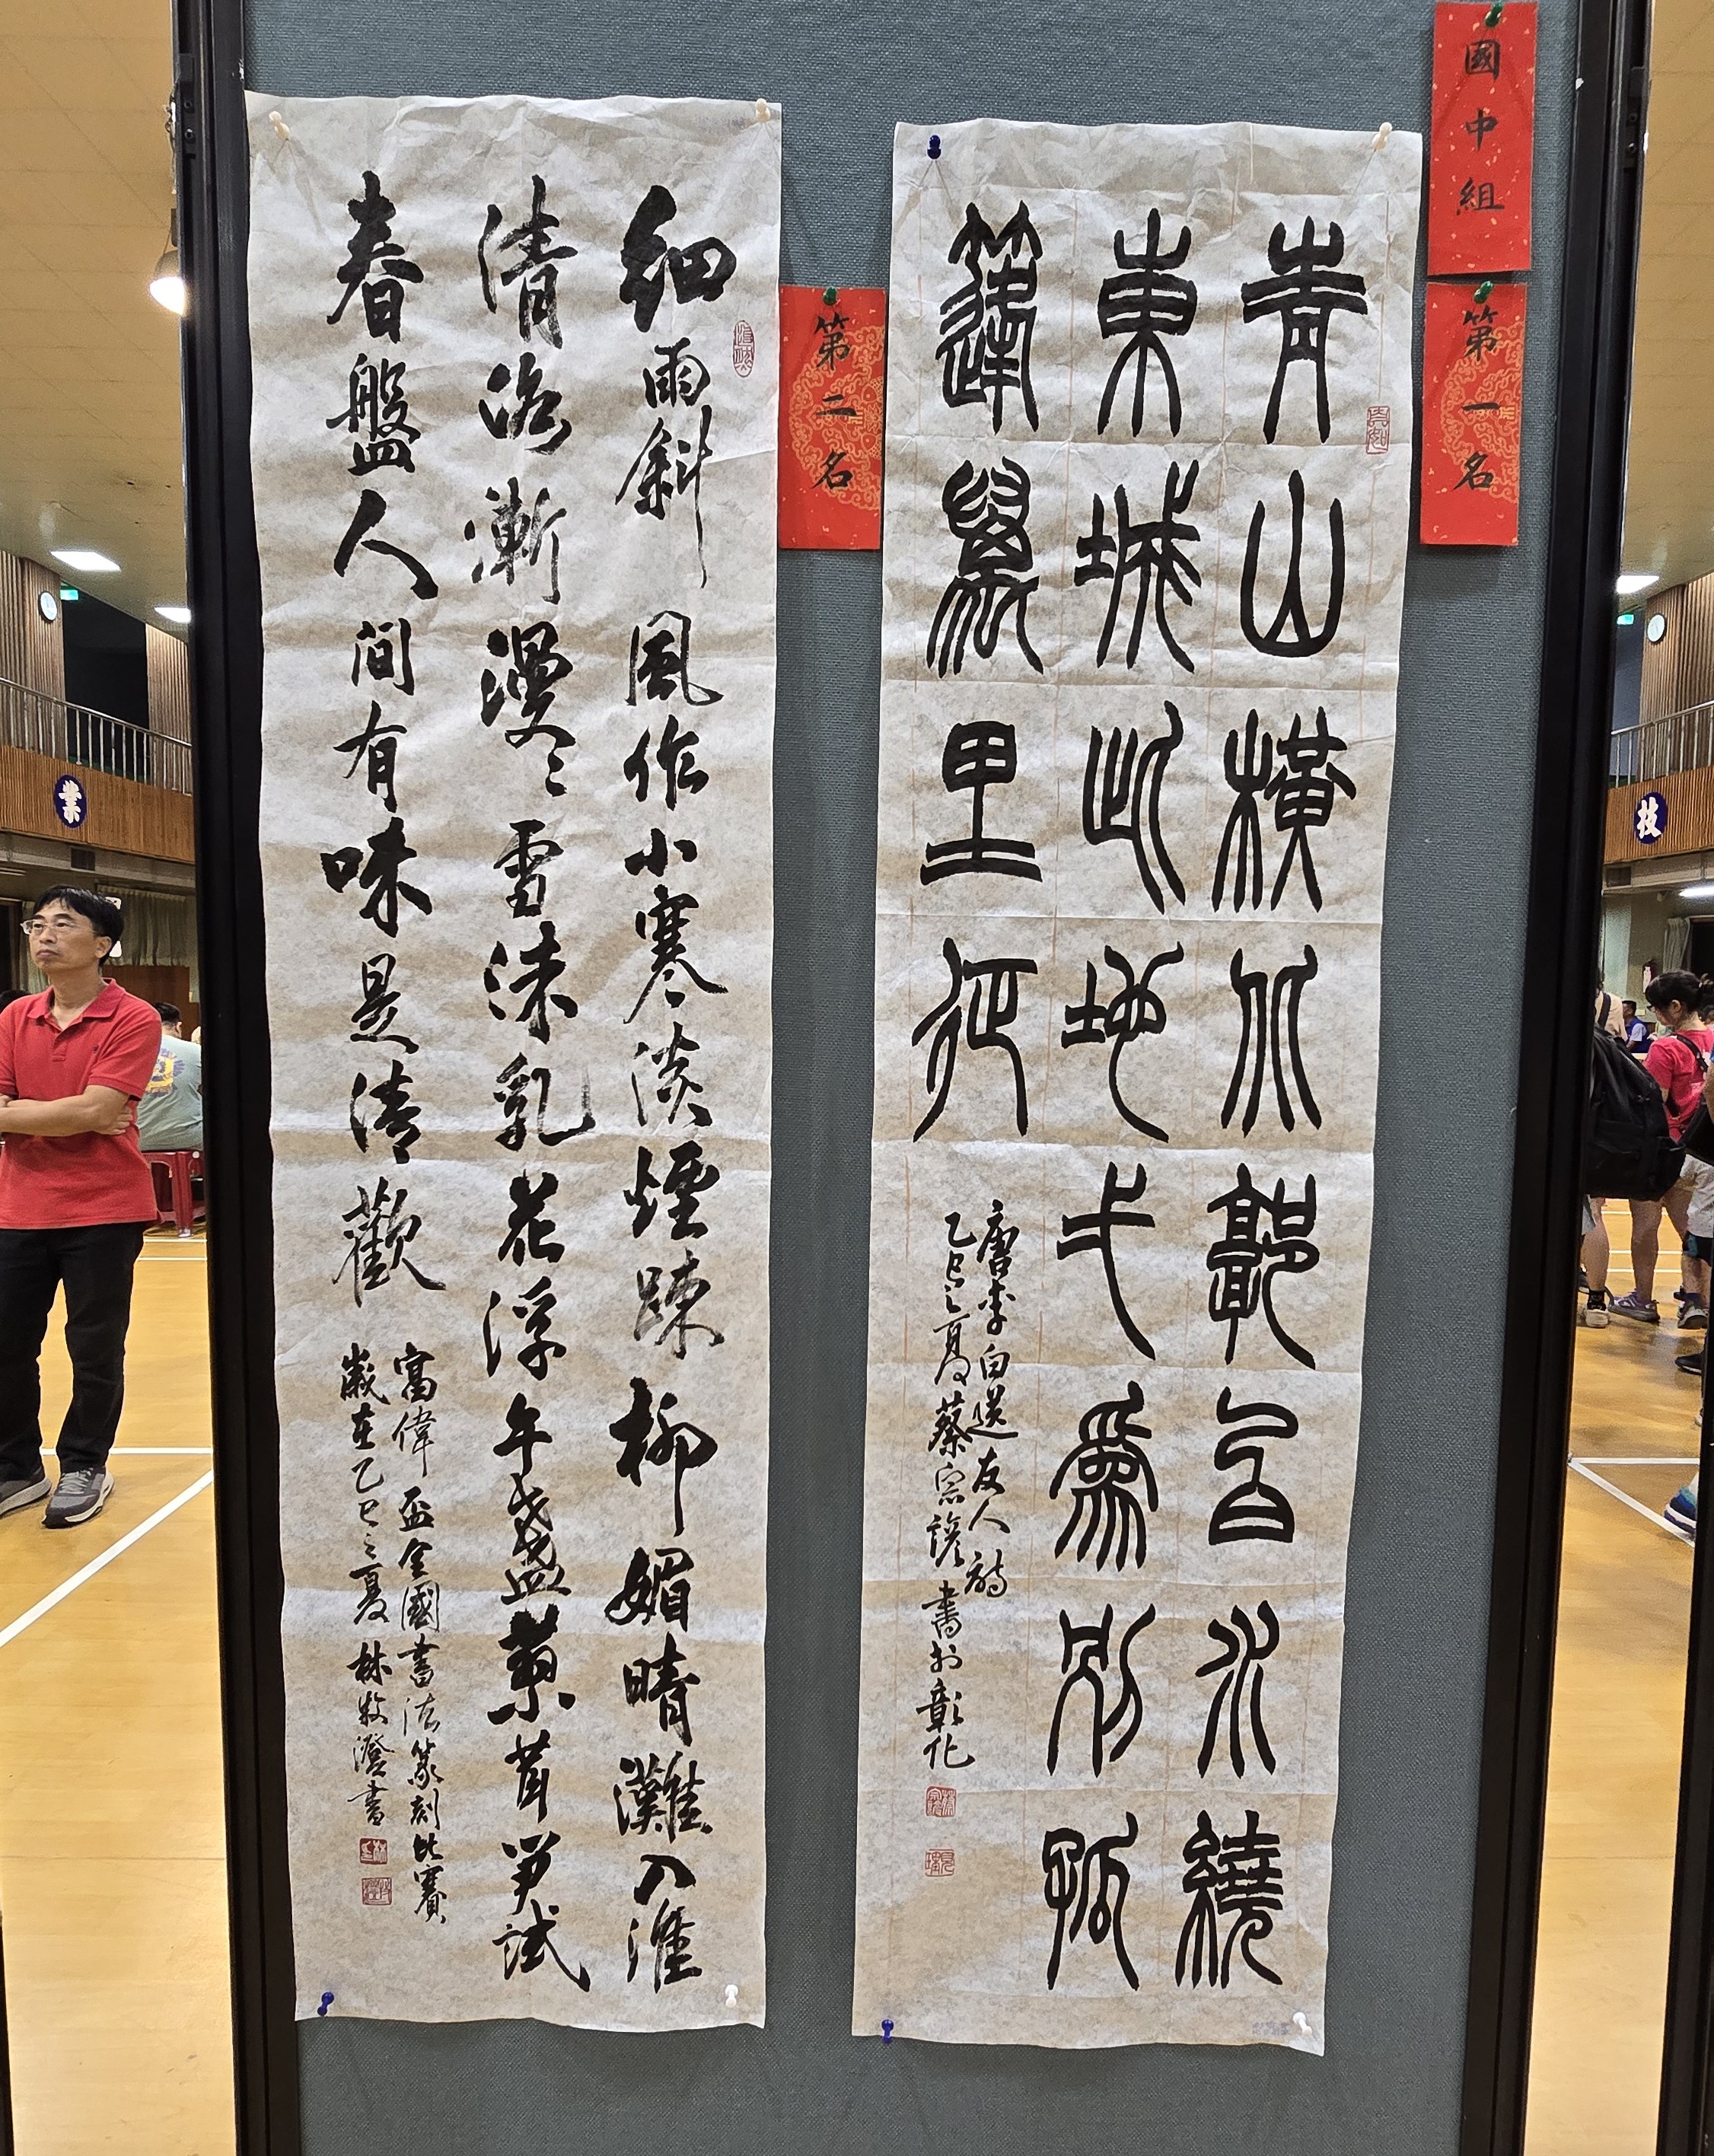 國中組
第一名
青山橫北郭白水繞
東城此地弌為別孤
蓬萬里征
唐李白送友人詩
乙巳之夏蔡宗諺書於彰化
第二名
細雨斜風作小寒淡煙疎柳媚晴灘入淮
清洛漸漫々雪沫乳花浮午盞蓼茸笋試
春盤人間有味是清歡
富偉盃全國書法篆刻比賽
歲在乙巳之夏林牧澄書
業
技